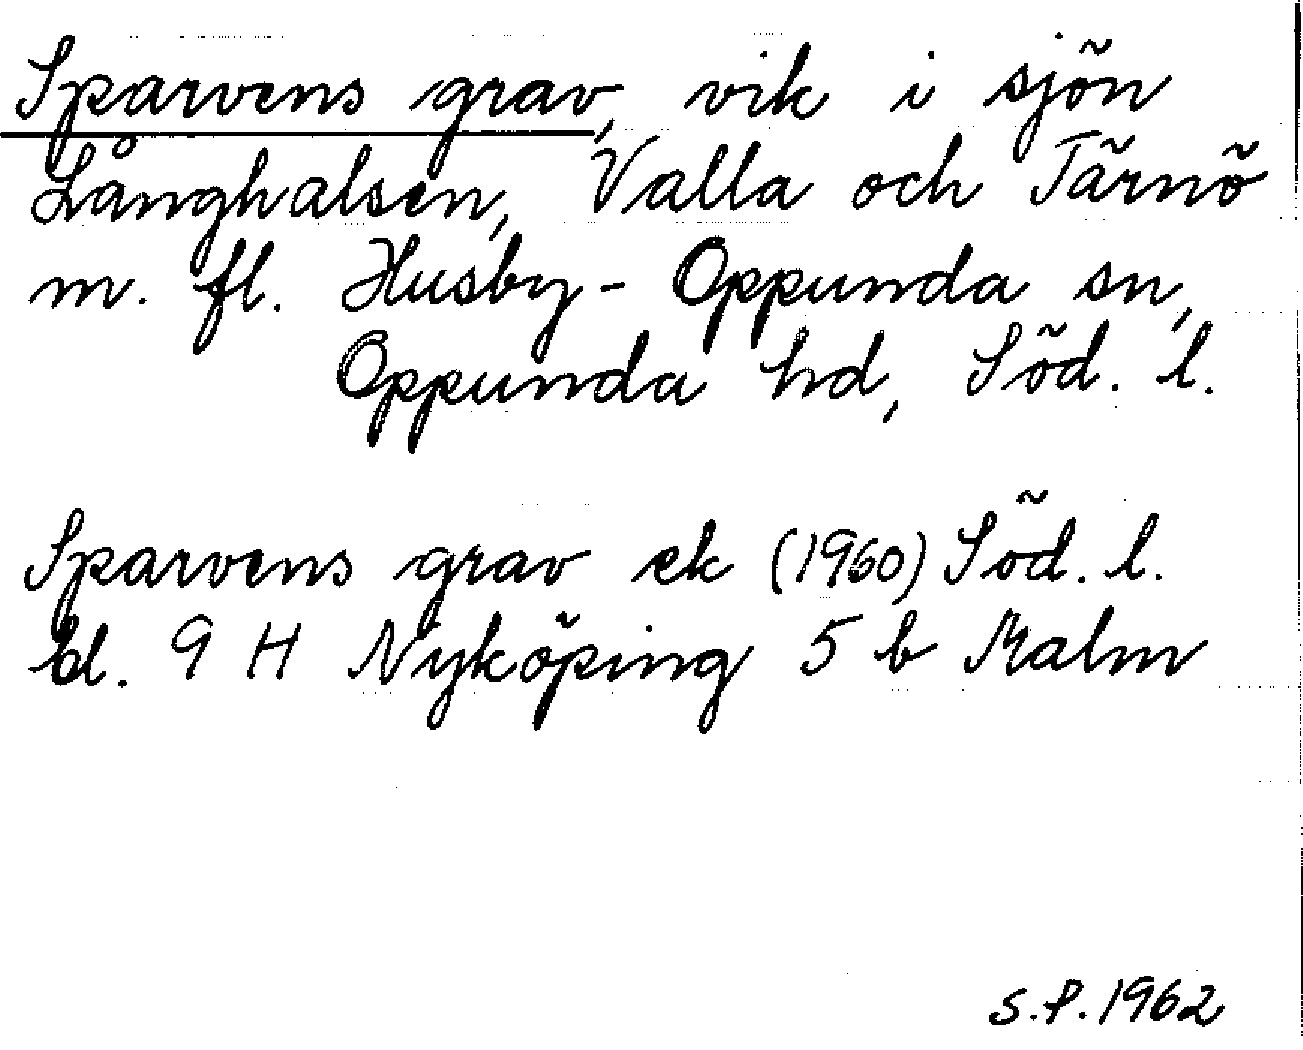 Sparvens grav, vik i sjön
Långhalsen, Valla och Tärnö
m. fl. Husby-Oppunda sn,
Oppunda hd, Söd. l.
Sparvens grav ek (1960) Söd. l.
bl. 9 H Nyköping 5 b Malm
S.P. 1962